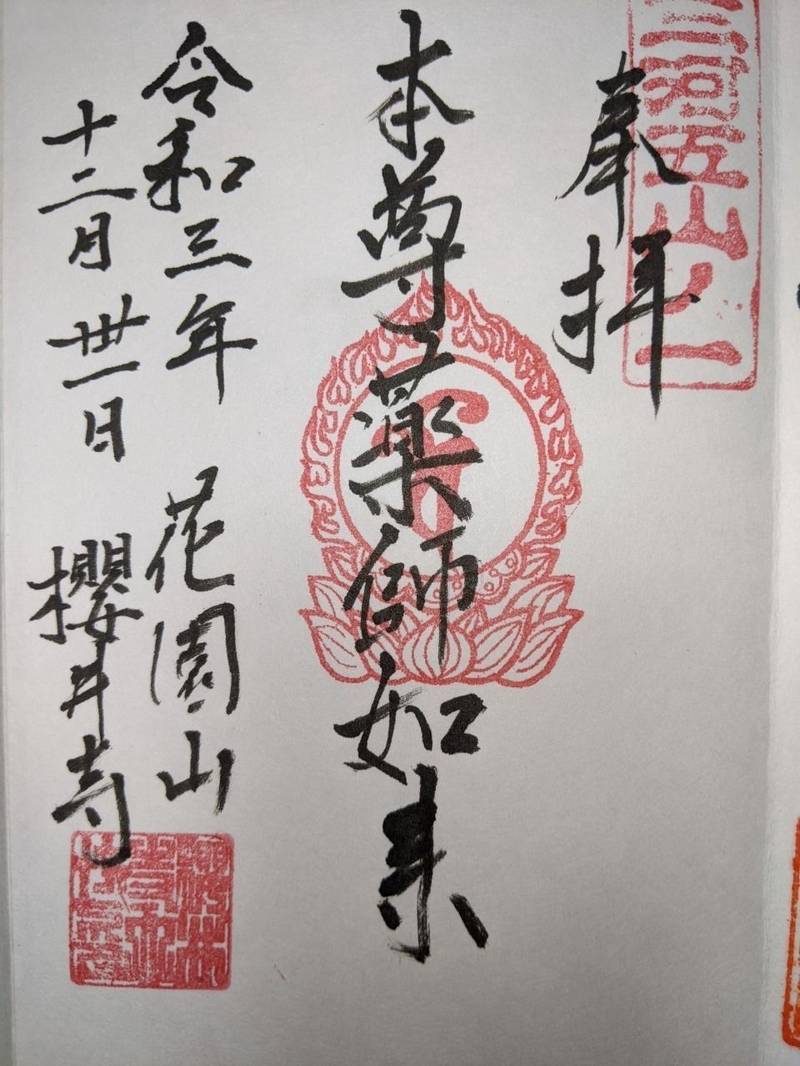 三河五山ノ一
奉拝
本尊薬師如来
令和三年 花園山
十二月卅一日 櫻井寺